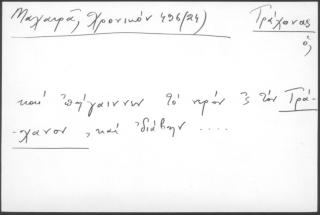 Μαχαιρᾶ, Χρονικόν 496/24)
Τράχονας
ὁ,
καὶ ἐπήγαιννεν τὸ νερὸν ς τὸν Τρά-
χωνον, καὶ ἐδιάβην ....